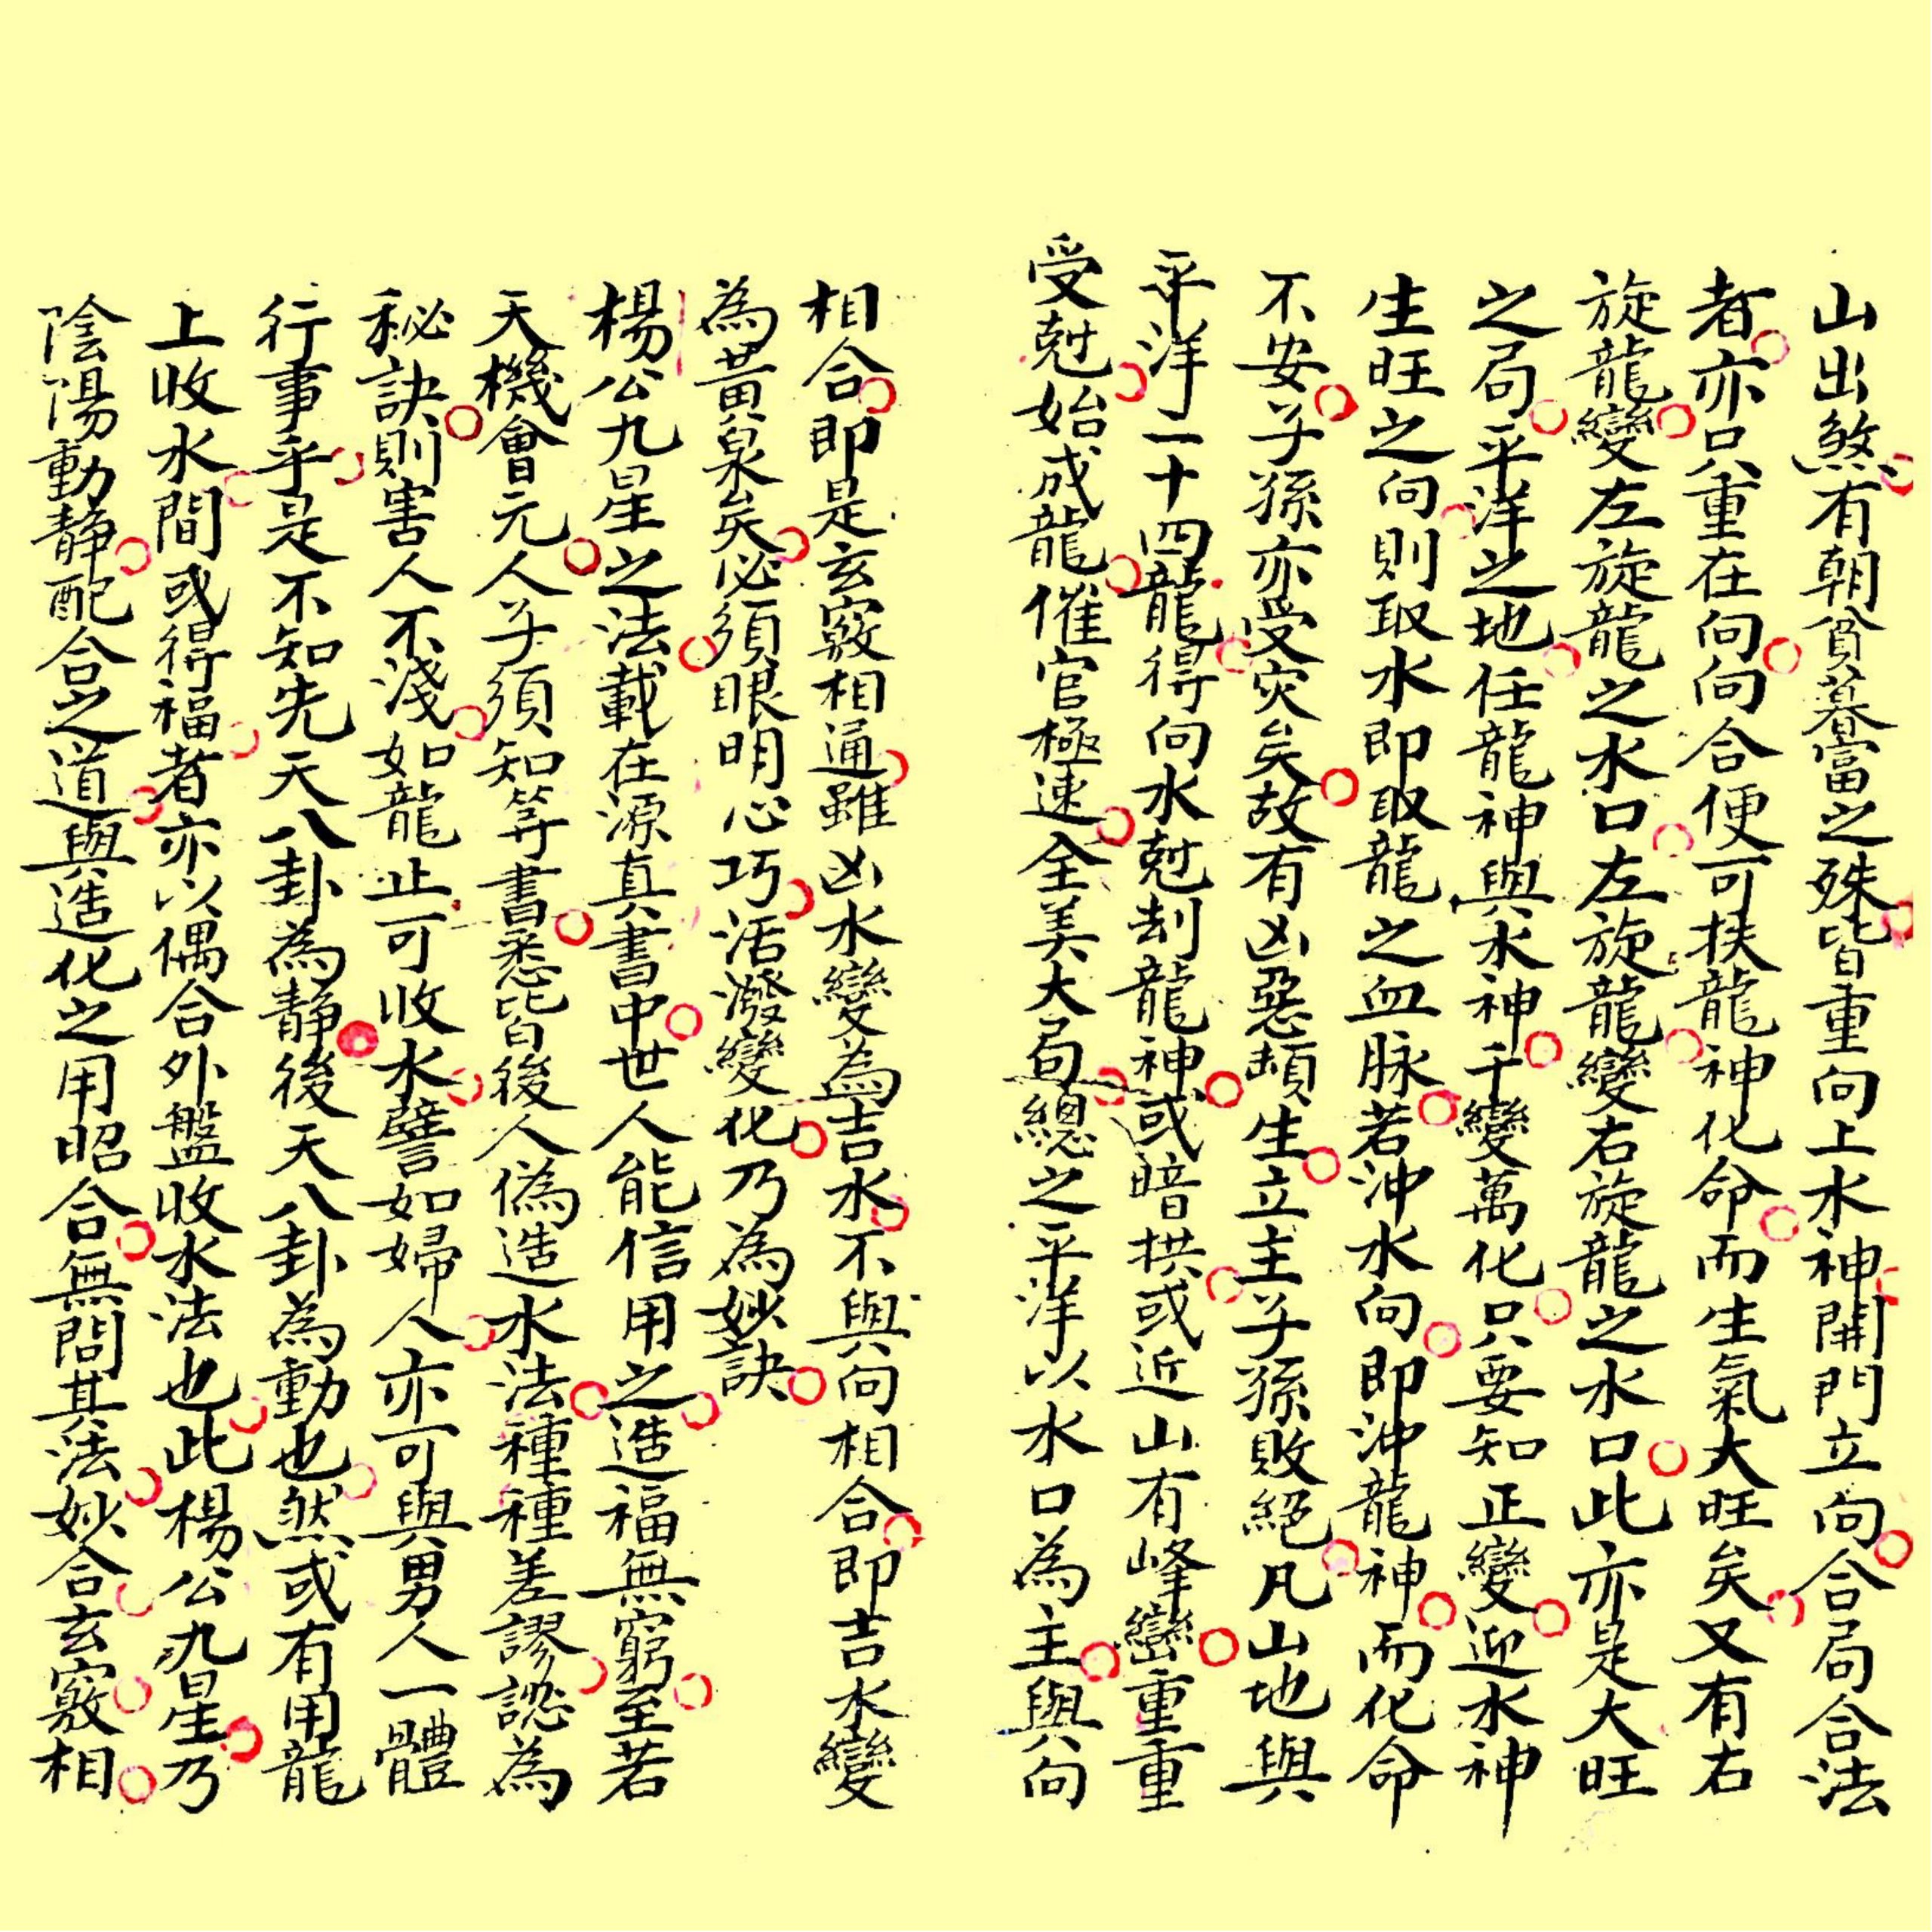 山出煞有朝貧暮富之殊皆重向上水神開門立向合局合法
者亦只重在向向合便可扶龍神化命而生氣大旺矣又有右
旋龍變左旋龍之水口左旋龍變右旋龍之水口此亦是大旺
之局平洋之地任龍神與水神千變萬化只要知正變迎水神
生旺之向則取水即取龍之血脉若沖水向即沖龍神而化命
不安子孫亦受灾矣故有凶惡頻生立主子孫敗絕凡山地與
平洋二十四龍得向水尅刦龍神或暗拱或近山有峰巒重重
受尅始成龍催官極速全美大局總之平洋以水口為主與向
相合即是玄竅相通雖凶水變為吉水不與向相合即吉水變
為黃泉矣必須眼明心巧活潑變化乃為妙訣
楊公九星之法載在源真書中世人能信用之造福無窮至若
天機會元人子須知等書悉皆後人偽造水法種種差謬認為
秘訣則害人不淺如龍止可收水譬如婦人亦可與男人一體
行事乎是不知先天八卦為靜後天八卦為動也然或有用龍
上收水間或得福者亦以偶合外盤收水法也此楊公九星乃
陰陽動靜配合之道與造化之用昭合無問其法妙合玄竅相